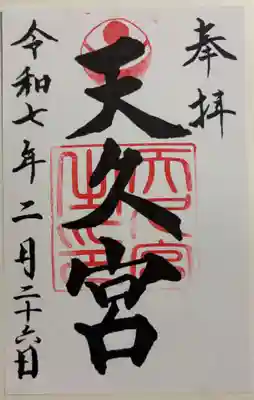 奉拝
天久宮
令和七年二月二十六日